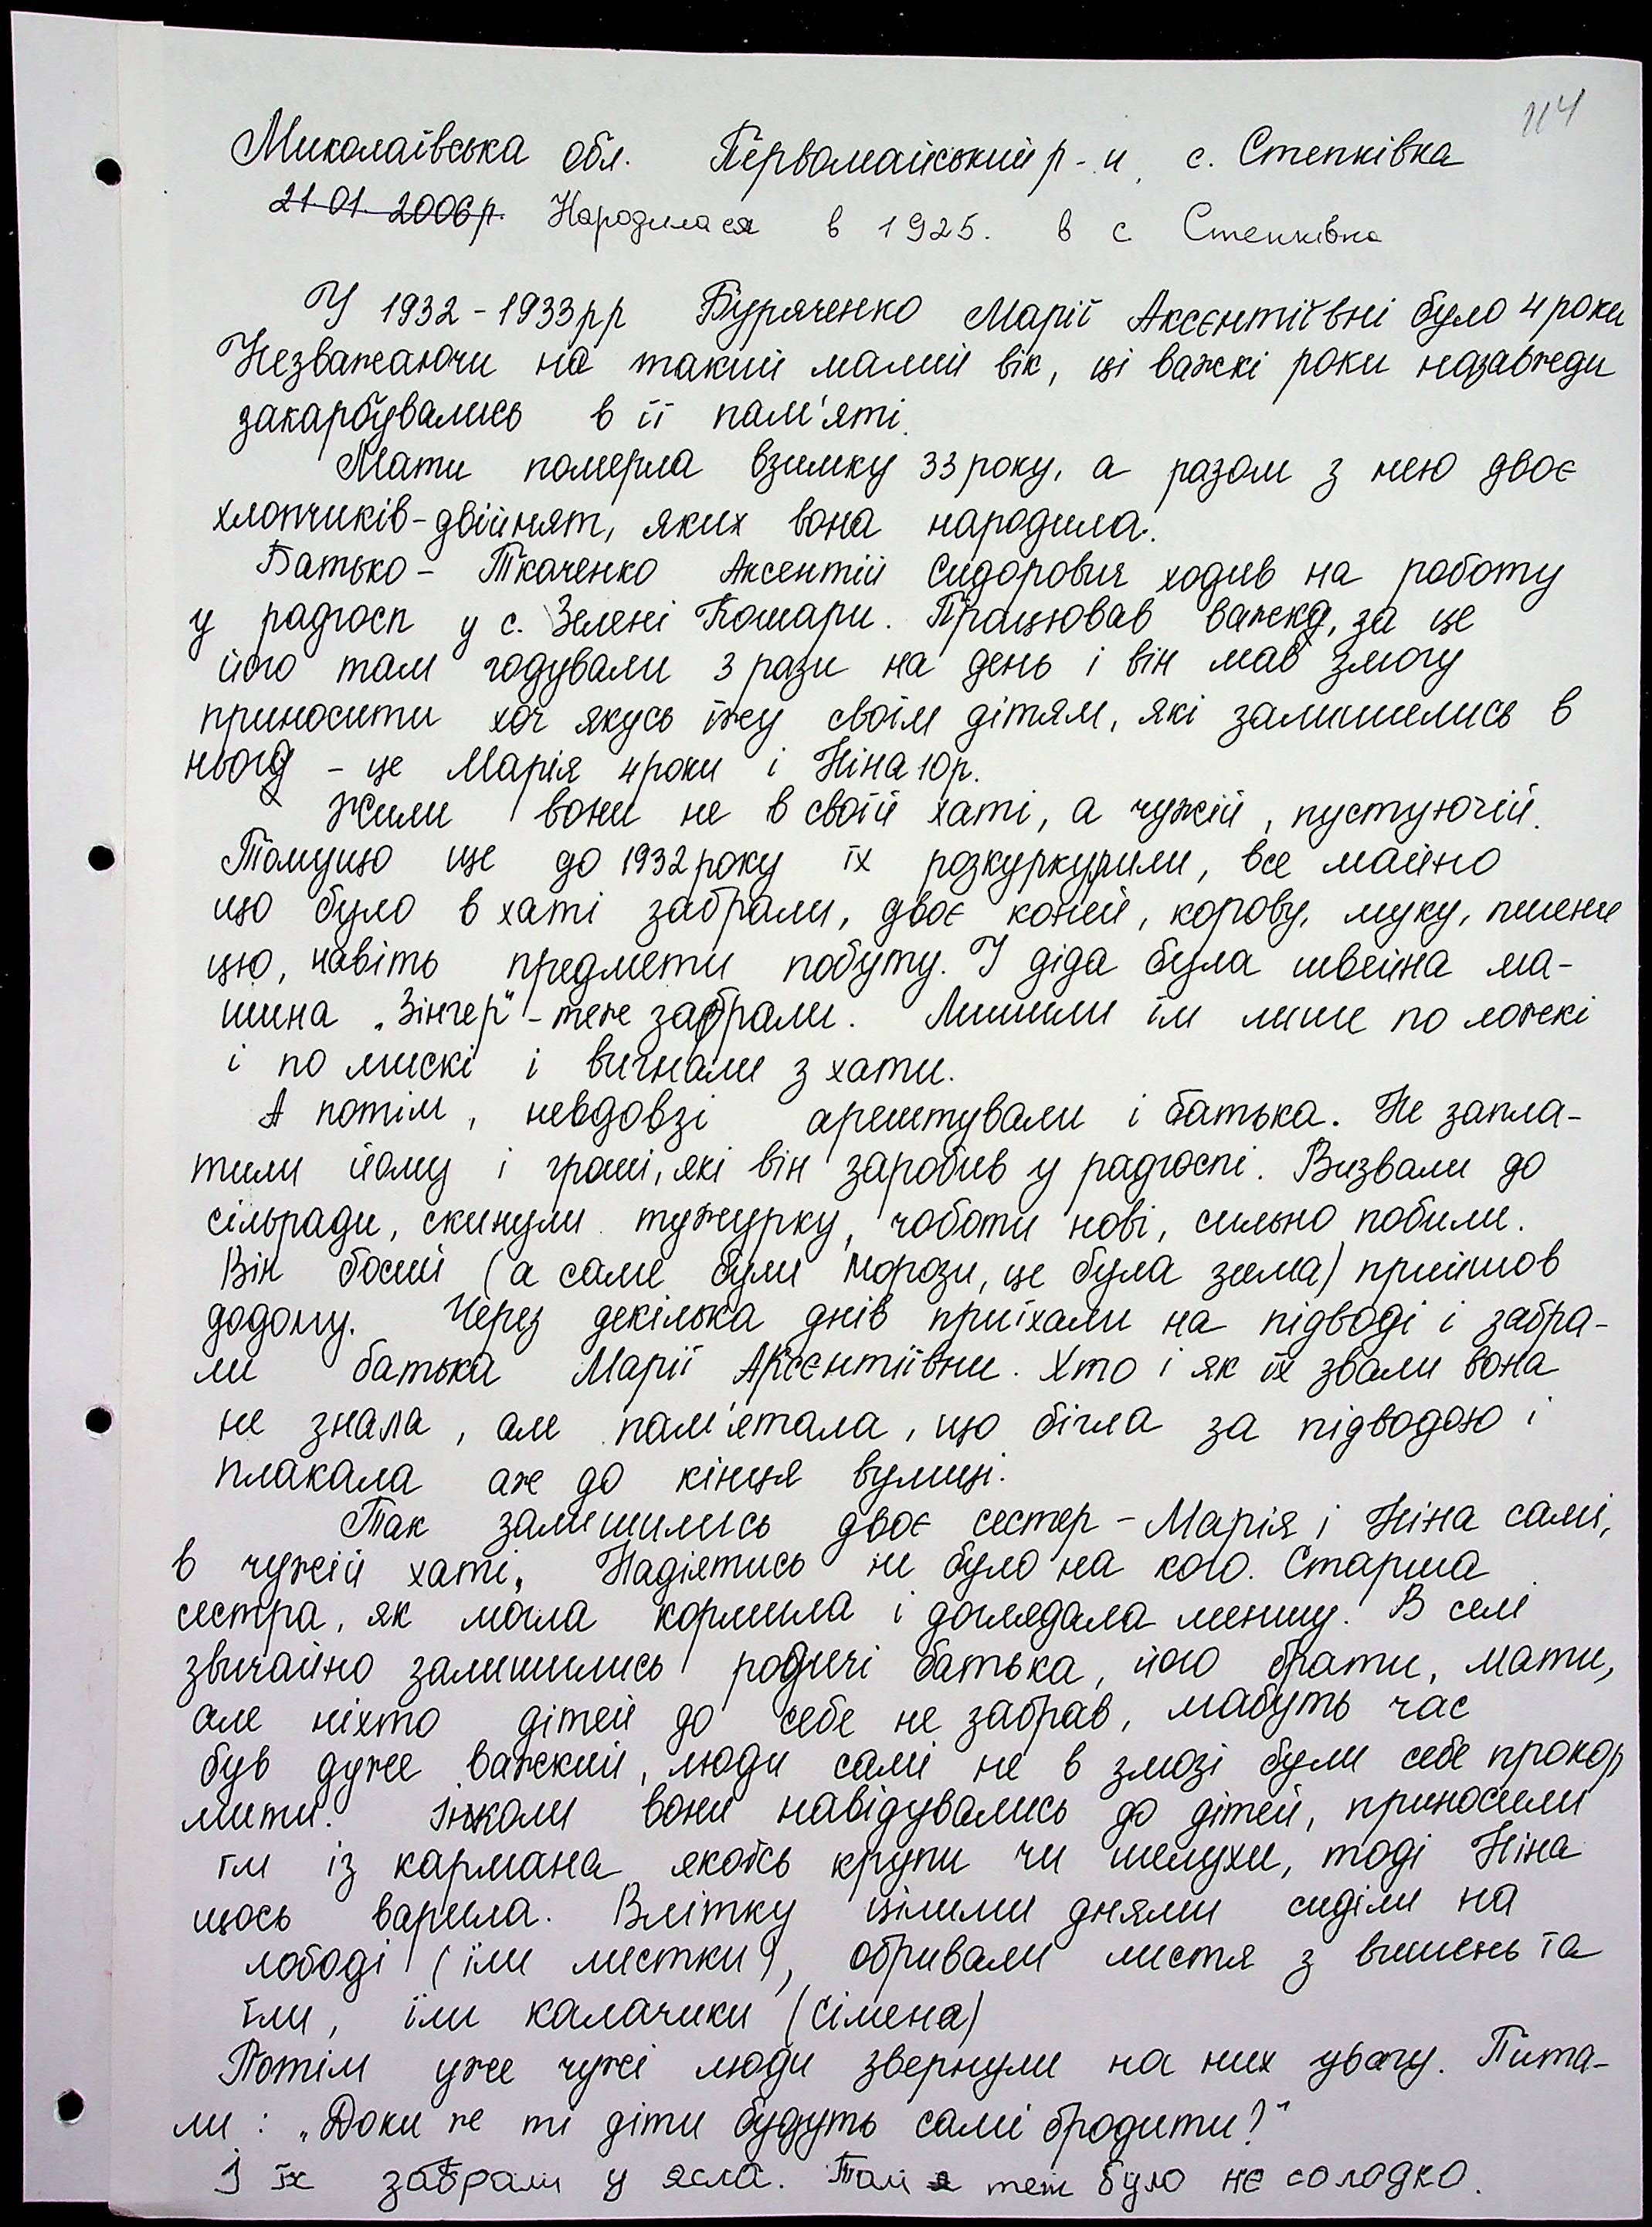 114
Миколаївська обл. Первомайський р-н. с. Степківка
21.01.2006р. Народилася в 1925. в с Степківка
У 1932-1933рр Буряченко Марії Аксєнтіївні було 4 роки
Незважаючи на такий малий вік, ці важкі роки назавжди
закарбувались в її пам'яті.
Мати померла взимку 33 року, а разом з нею двоє
хлопчиків-двійнят, яких вона народила.
Батько - Ткаченко Аксентій Сидорович ходив на роботу
у радгосп у с. Зелені Кошари. Працював важко, за це
його там годували 3 рази на день і він мав змогу
приносити хоч якусь їжу своїм дітям, які залишились в
нього - це Марія 4 роки і Ніна 10р.
Жили вони не в своїй хаті, а чужій, пустуючій.
Томущо ще до 1932 року їх розкуркулили, все майно
що було в хаті забрали, двоє коней, корову, муку, пшени
цю, навіть предмети побуту. У діда була швейна ма-
шина „Зінгер" - теж забрали. Лишили їм лише по ложкі
і по мискі і вигнали з хати.
А потім, невдовзі арештували і батька. Не запла-
тили йому і гроші, які він заробив у радгоспі. Визвали до
сільради, скинули тужурку, чоботи нові, сильно побили.
Він босий (а саме були морози, це була зима) прийшов
додому. Через декілька днів приїхали на підводі і забра-
ли батька Марії Аксєнтіївни. Хто і як їх звали вона
не знала, але пам'ятала, що бігла за підводою і
плакала аж до кінця вулиці.
Так залишились двоє сестер - Марія і Ніна самі,
в чужій хаті. Надіятись не було на кого. Старша
сестра, як могла кормила і доглядала меншу. В селі
звичайно залишились родичі батька, його брати, мати,
але ніхто дітей до себе не забрав, мабуть час
був дуже важкий, люди самі не в змозі були себе прокор
мити. Інколи вони навідувались до дітей, приносили
їм із кармана якоїсь крупи чи шелухи, тоді Ніна
щось варила. Влітку цілими днями сиділи на
лободі (їли листки), обривали листя з вишень та
їли, їли калачики (сімена)
Потім уже чужі люди звернули на них увагу. Пита-
ли: „Доки же ті діти будуть самі бродити?"
І їх забрали у ясла. Там теж було не солодко.